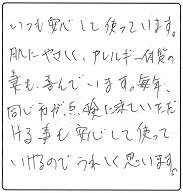 いつも安心して使っています。
肌にやさしく、アレルギー体質の
妻も喜んでいます。毎年、
同じ方が点検に来ていただ
ける事も安心して使って
いけるのでうれしく思います。